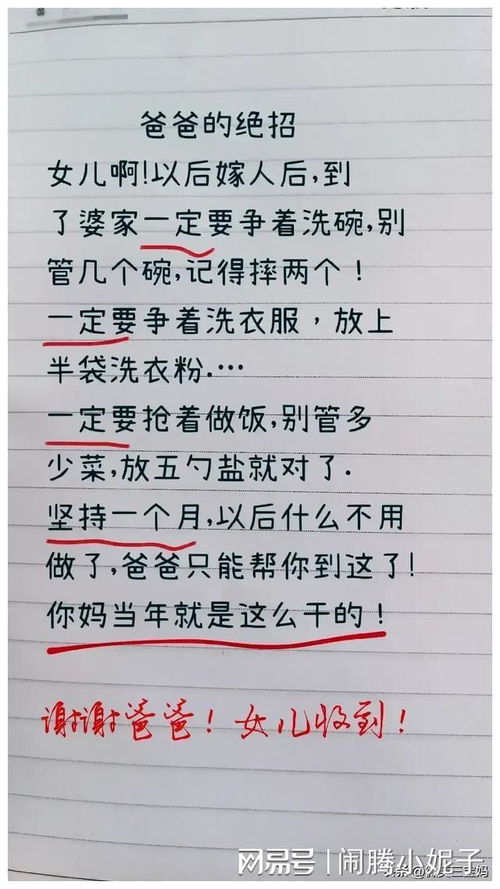 爸爸的绝招
女儿啊!以后嫁人后,到
了婆家一定要争着洗碗,别
管几个碗,记得摔两个!
一定要争着洗衣服，放上
半袋洗衣粉.…
一定要抢着做饭,别管多
少菜,放五勺盐就对了.
坚持一个月,以后什么不用
做了,爸爸只能帮你到这了!
你妈当年就是这么干的!
谢谢爸爸!女儿收到!
网易号|闹腾小妮子